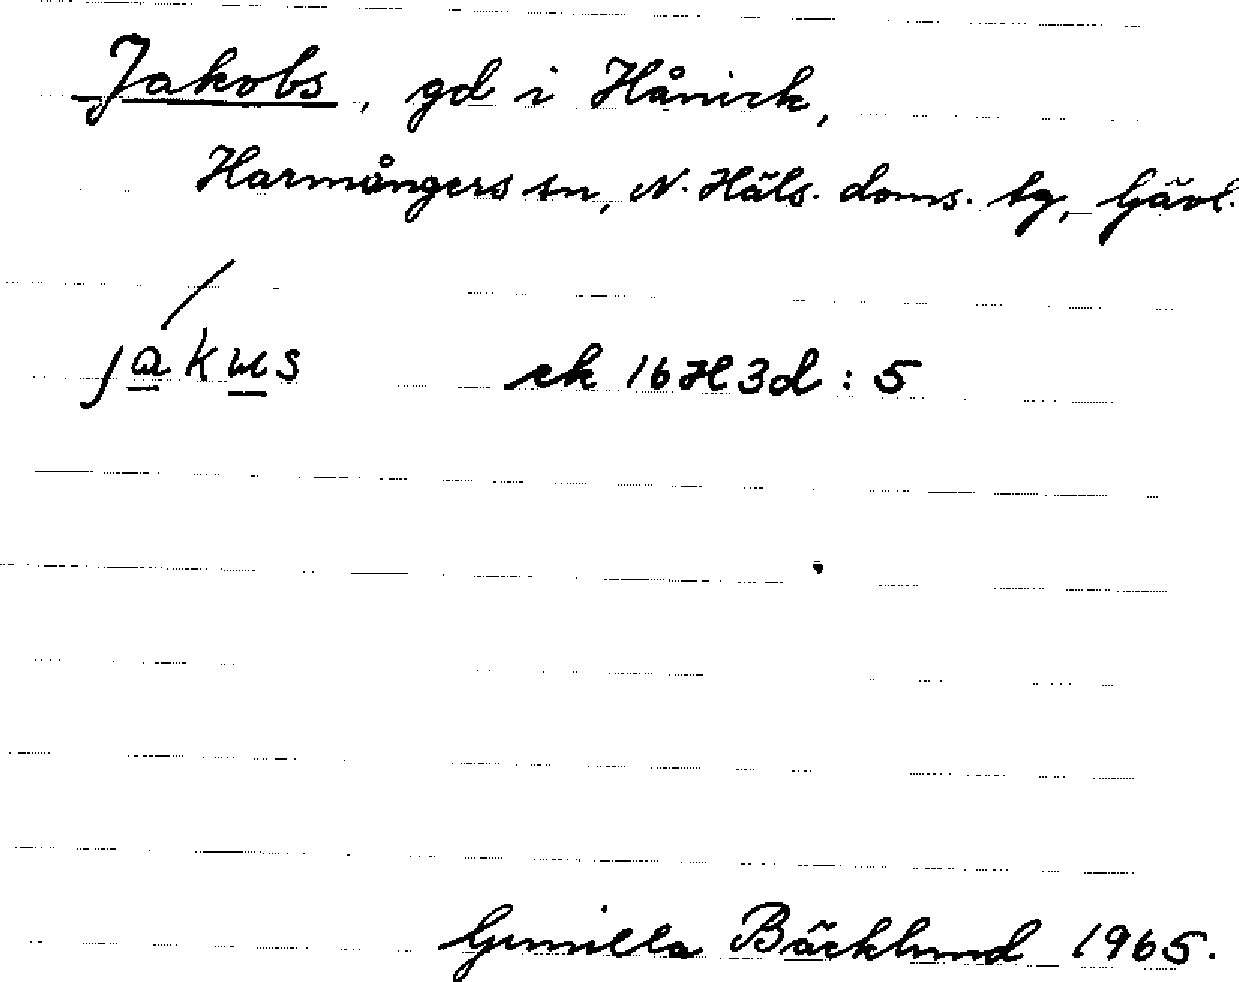 Jakobs, gd i Hånick,
Harmångers sn, N. Häls. doms. tg, Gävl.
jakus ek 16H3d:5
Gunilla Bäcklund 1965.